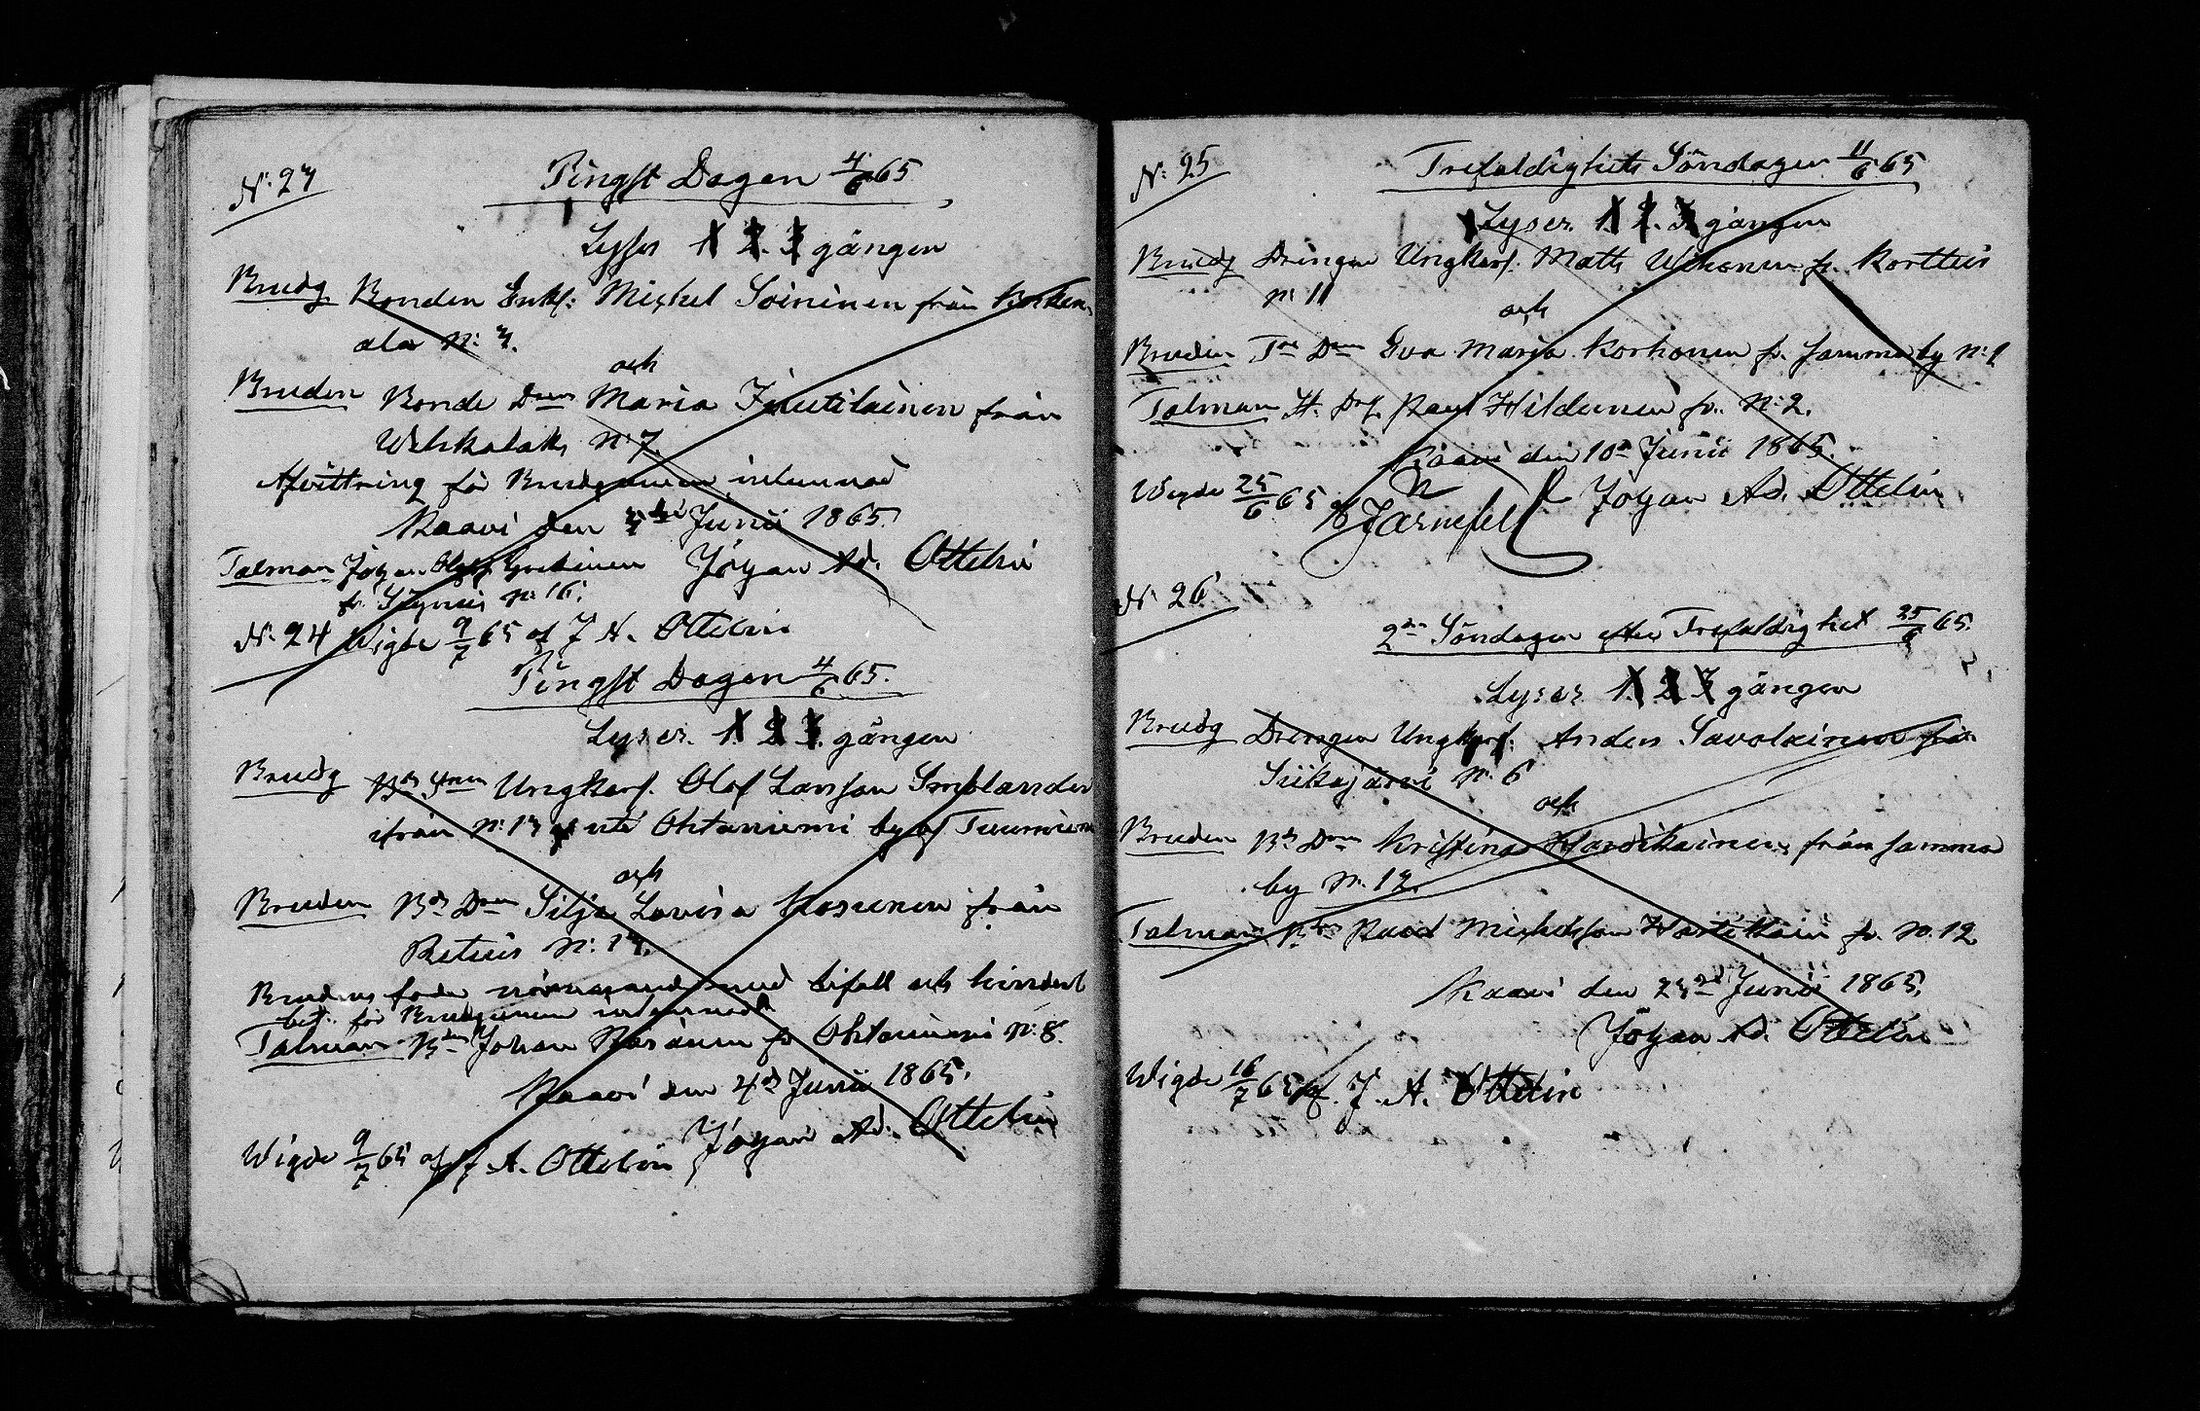 N: 23
Pingst Dagen 4/6 65
Lyses 1 2. 3 gången
Brudg Bonden Enkl: Michel Soininen från
ala N: 3.
och
Bruden Bonde Dren Maria från
N: 7.
Afvittring för Brudgummen inlemnad
Kaavi den Junii 1865
Talman Johan Olofs.
fr. N: 16.
Johan Ad. Ottelin
N: 24 Wigde 9/7 65 af J A. Ottelin
Pingst Dagen 4/6 65.
Lyses. 1. 2 3. gången
Brudg Bd Sn Ungkarl. Olof Larsson Smolander
från N: 13 uti Ohtaniemi by af Tuusniemi
och
Bruden Bd Dren Silja Lovisa Kosunen från
N: 13.
Brudens fader närvarande med bifall och hinderl
bet. för Brudgummen inlemnadt
Talman Johan Räsänen fr Ohtaniemi N: 8.
Kaavi den 4de Junii 1865.
Johan Ad. Ottelin
Wigde 9/7 65 af J. A. Ottelin
N: 25
Trefaldighets Söndagen 11/6 65
Lyses. 1. 2. 3 gången
Brudg Drängen Ungkarl. Matts fr. Korttus
N: 11
och
Bruden Dren Eva Maria Korhonen fr. samma by N: 1
Talman Paul fr. N: 2.
Kaavi den 10de Junii 1865.
Wigde 25/6 65 Järnefelt Johan Ad. Ottelin
N: 26
2dra Söndagen efter Trefaldighet 25/6 65.
Lyses 1. 2 3 gången
Brudg Drängen Ungkarl. Anders Savolainen från
Siikajärvi N: 6
och
Bruden Bd Dren Kristina Hardikainen från samma
by N: 12.
Talman Paul Michelsson fr. N: 12
Kaavi den Junii 1865.
Johan Ad. Ottelin
Wigde 16/7 65 af. J. A. Ottelin